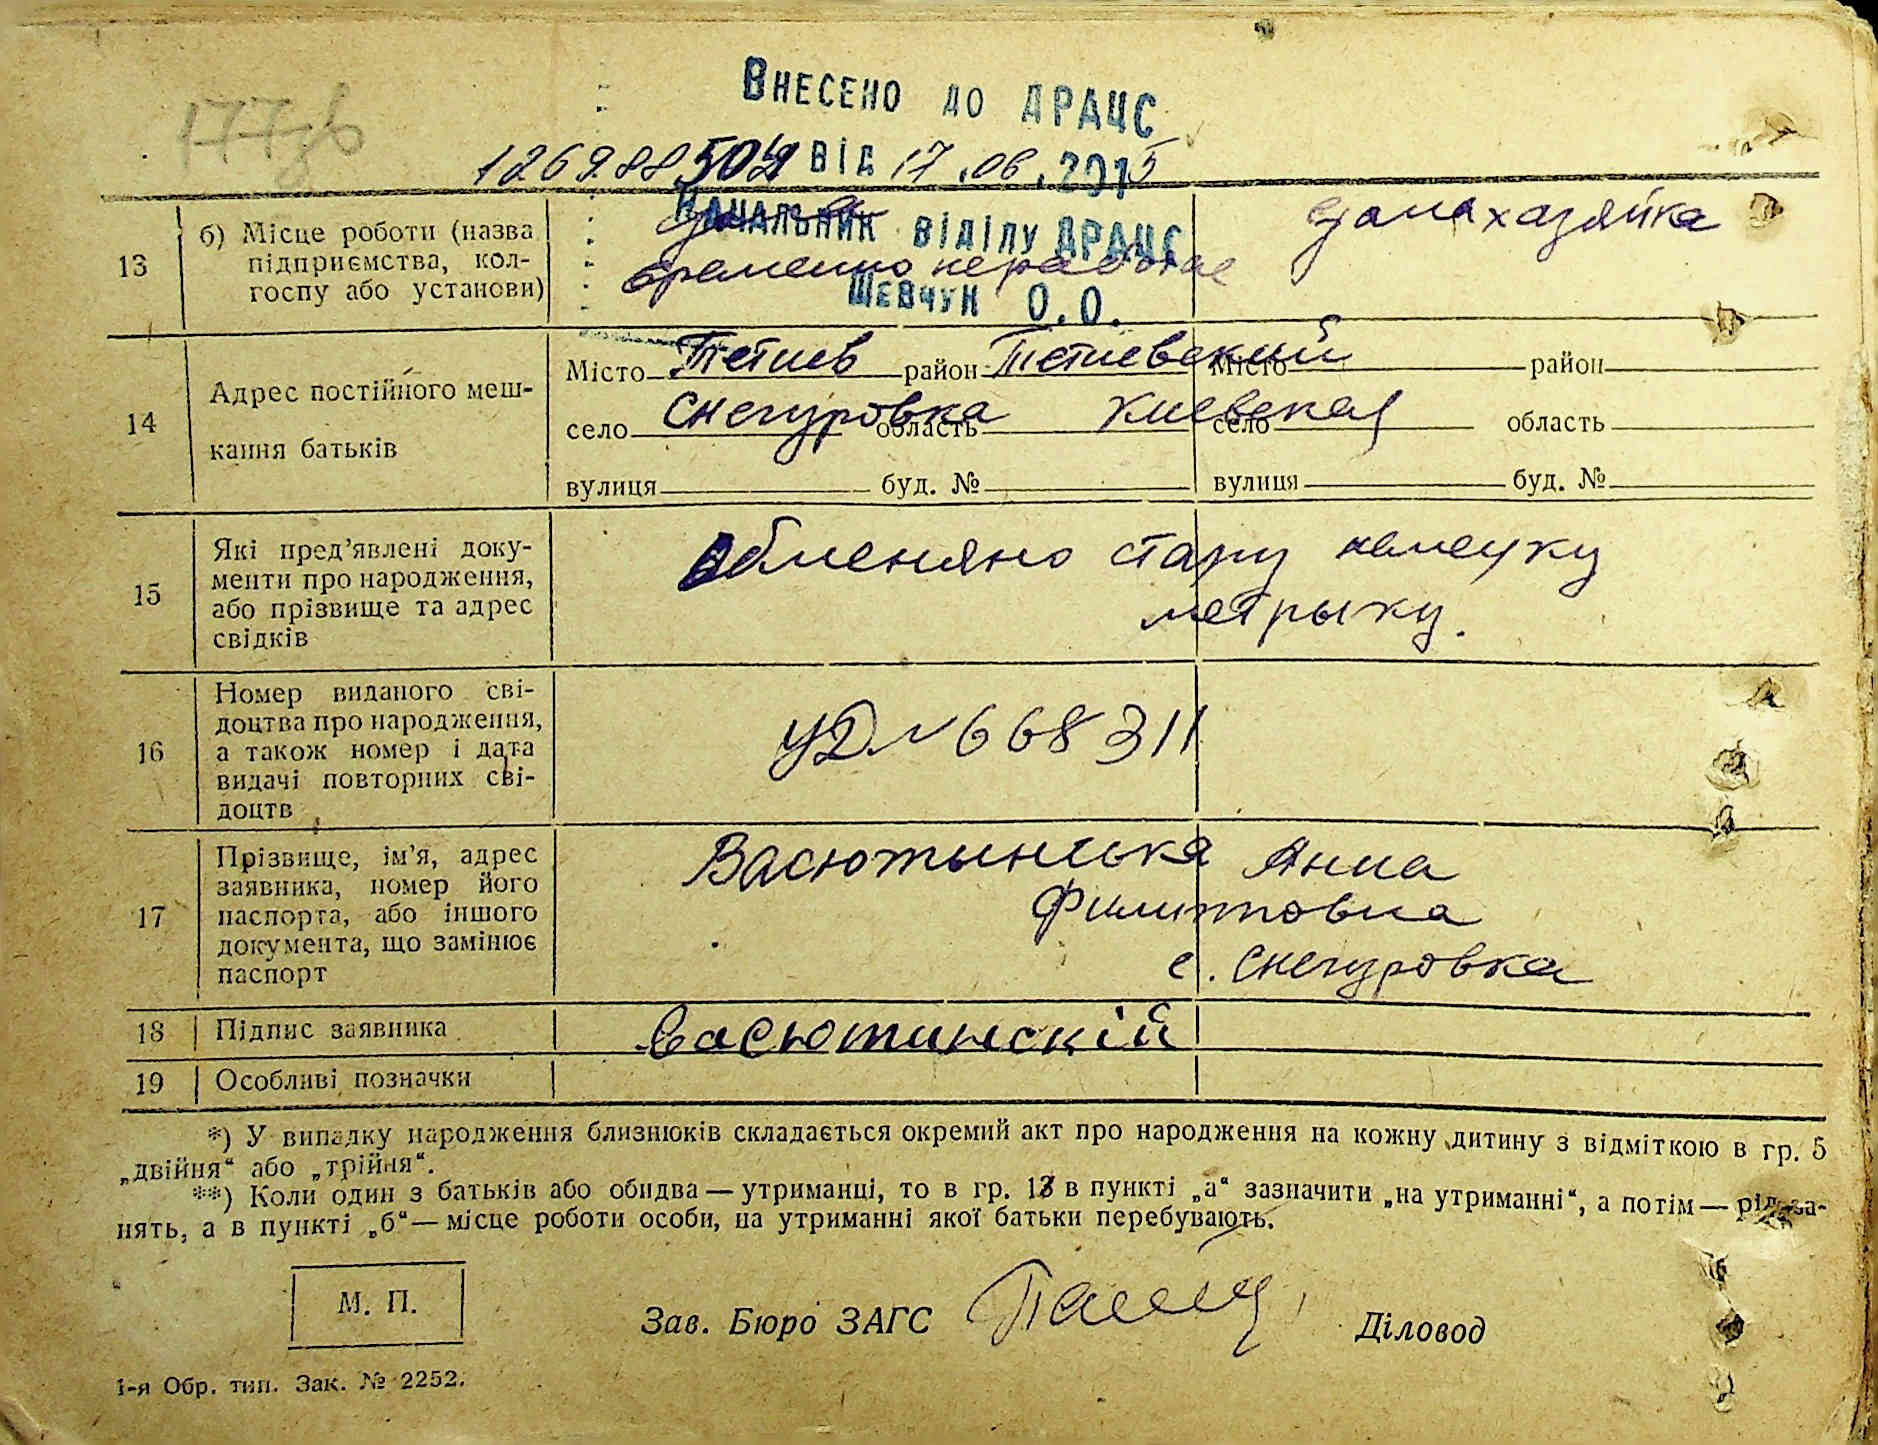 177зв
Внесено до ДРАЦС
від 17.06.2015
Начальник відділу ДРАЦС
Шевчук О.О.
13 б) Місце роботи (назва
підприємства, кол-
госпу або установи)
временно не работае
домахазяйка
14 Адрес постійного меш-
кання батьків
Місто Тетиев район Тетиевский Місто район
село Снегуровка область Киевская село область
вулиця буд. № вулиця буд. №
15 Які пред’явлені доку-
менти про народження,
або прізвище та адрес
свідків
Обменяно стару немецку
метрыку.
16 Номер виданого сві-
доцтва про народження,
а також номер і дата
видачі повторних сві-
доцтв
УД № 668311
17 Прізвище, ім’я, адрес
заявника, номер його
паспорта, або іншого
документа, що замінює
паспорт
Васютынська Анна
Филипповна
с. Снегуровка
18 Підпис заявника Васютинскій
19 Особливі позначки
*) У випадку народження близнюків складається окремий акт про народження на кожну дитину з відміткою в гр. 5
„двійня“ або „трійня“.
**) Коли один з батьків або обидва — утриманці, то в гр. 13 в пункті „а“ зазначити „на утриманні“, а потім — рід за-
нять, а в пункті „б“ — місце роботи особи, на утриманні якої батьки перебувають.
М. П.
Зав. Бюро ЗАГС Діловод
1-я Обр. тип. Зак. № 2252.